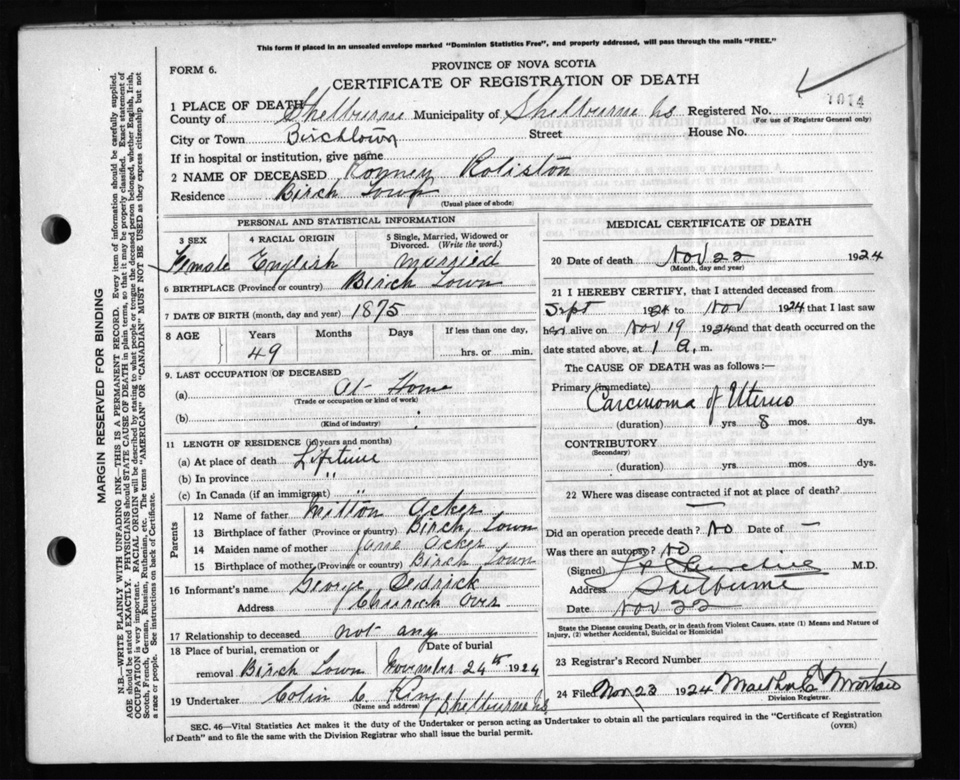 This form if placed in an unsealed envelope marked "Dominion Statistics Free", and properly addressed, will pass through the mails "FREE."
FORM 6.
PROVINCE OF NOVA SCOTIA
CERTIFICATE OF REGISTRATION OF DEATH
1014
1 PLACE OF DEATH
County of Shelburne Municipality of Shelburne Registered No.
(For use of Registrar General only)
City or Town Birchtown Street House No.
If in hospital or institution, give name
2 NAME OF DECEASED Roliston
Residence Birch Town
(Usual place of abode)
PERSONAL AND STATISTICAL INFORMATION
3 SEX 4 RACIAL ORIGIN 5 Single, Married, Widowed or Divorced. (Write the word.)
Female English Married
6 BIRTHPLACE (Province or country) Birch Town
7 DATE OF BIRTH (month, day and year) 1875
8 AGE Years Months Days If less than one day,
49 hrs. or min.
9. LAST OCCUPATION OF DECEASED
(a) At Home
(Trade or occupation or kind of work)
(b)
(Kind of industry)
11 LENGTH OF RESIDENCE (in years and months)
(a) At place of death Lifetime
(b) In province " "
(c) In Canada (if an immigrant) " "
Parents
12 Name of father Milton Acker
13 Birthplace of father (Province or country) Birch Town
14 Maiden name of mother Jane Acker
15 Birthplace of mother (Province or country) Birch Town
16 Informant's name George Dedrick
Address Church Over
17 Relationship to deceased not any
18 Place of burial, cremation or Date of burial
removal Birch Town November 24th 1924
19 Undertaker Colin C. King
(Name and address) Shelburne NS
MEDICAL CERTIFICATE OF DEATH
20 Date of death Nov 22 1924
(Month, day and year)
21 I HEREBY CERTIFY, that I attended deceased from
Sept 1924 to Nov 1924 that I last saw
her alive on Nov 19 1924 and that death occurred on
date stated above, at 1 a, m.
The CAUSE OF DEATH was as follows:—
Primary (immediate)
Carcinoma of Uterus
(duration) yrs 8 mos. dys.
CONTRIBUTORY
(Secondary)
(duration) yrs. mos. dys.
22 Where was disease contracted if not at place of death?
Did an operation precede death? No Date of —
Was there an autopsy? No
(Signed) M.D.
Address Shelburne
Date Nov 22
State the Disease causing Death, or in death from Violent Causes. state (1) Means and Nature of Injury, (2) whether Accidental, Suicidal or Homicidal
23 Registrar's Record Number
24 Filed Nov 23 1924 Martha E Morton
Division Registrar.
SEC. 46—Vital Statistics Act makes it the duty of the Undertaker or person acting as Undertaker to obtain all the particulars required in the "Certificate of Registration
of Death" and to file the same with the Division Registrar who shall issue the burial permit.
(OVER)
MARGIN RESERVED FOR BINDING
N.B.—WRITE PLAINLY WITH UNFADING INK—THIS IS A PERMANENT RECORD. Every item of information should be carefully supplied.
AGE should be stated EXACTLY. PHYSICIANS should STATE CAUSE OF DEATH in plain terms, so that it may be properly classified. Exact statement of
OCCUPATION is very important. RACIAL ORIGIN will be described by stating to what people or tongue the deceased person belonged, whether English, Irish,
Scotch, French, German, Russian, Ruthenian, etc. The terms "AMERICAN" or "CANADIAN" MUST NOT BE USED as they express citizenship but not
a race or people. See instructions on back of Certificate.